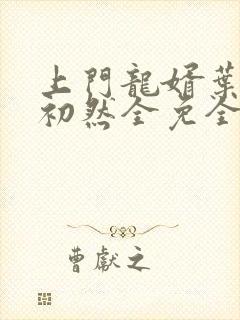 上門龍婿葉
初然全免全
曹獻之